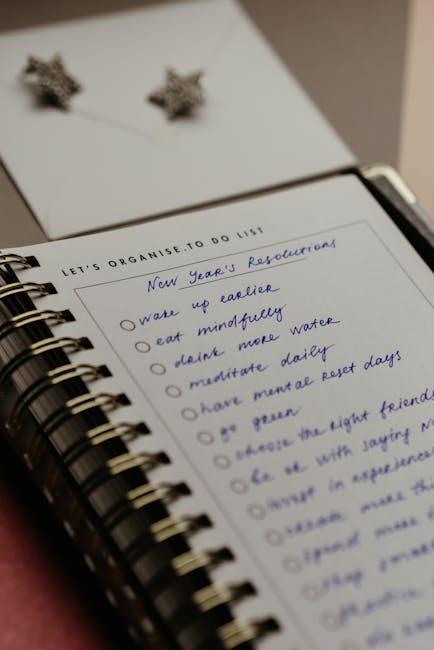 LET'S ORGANISE.TO DO LIST
New Year's Resolutions
wake up earlier
eat mindfully
drink more water
meditate daily
have mental reset days
go green
choose the right friends
be ok with saying
invest in experiences
create more
spend more